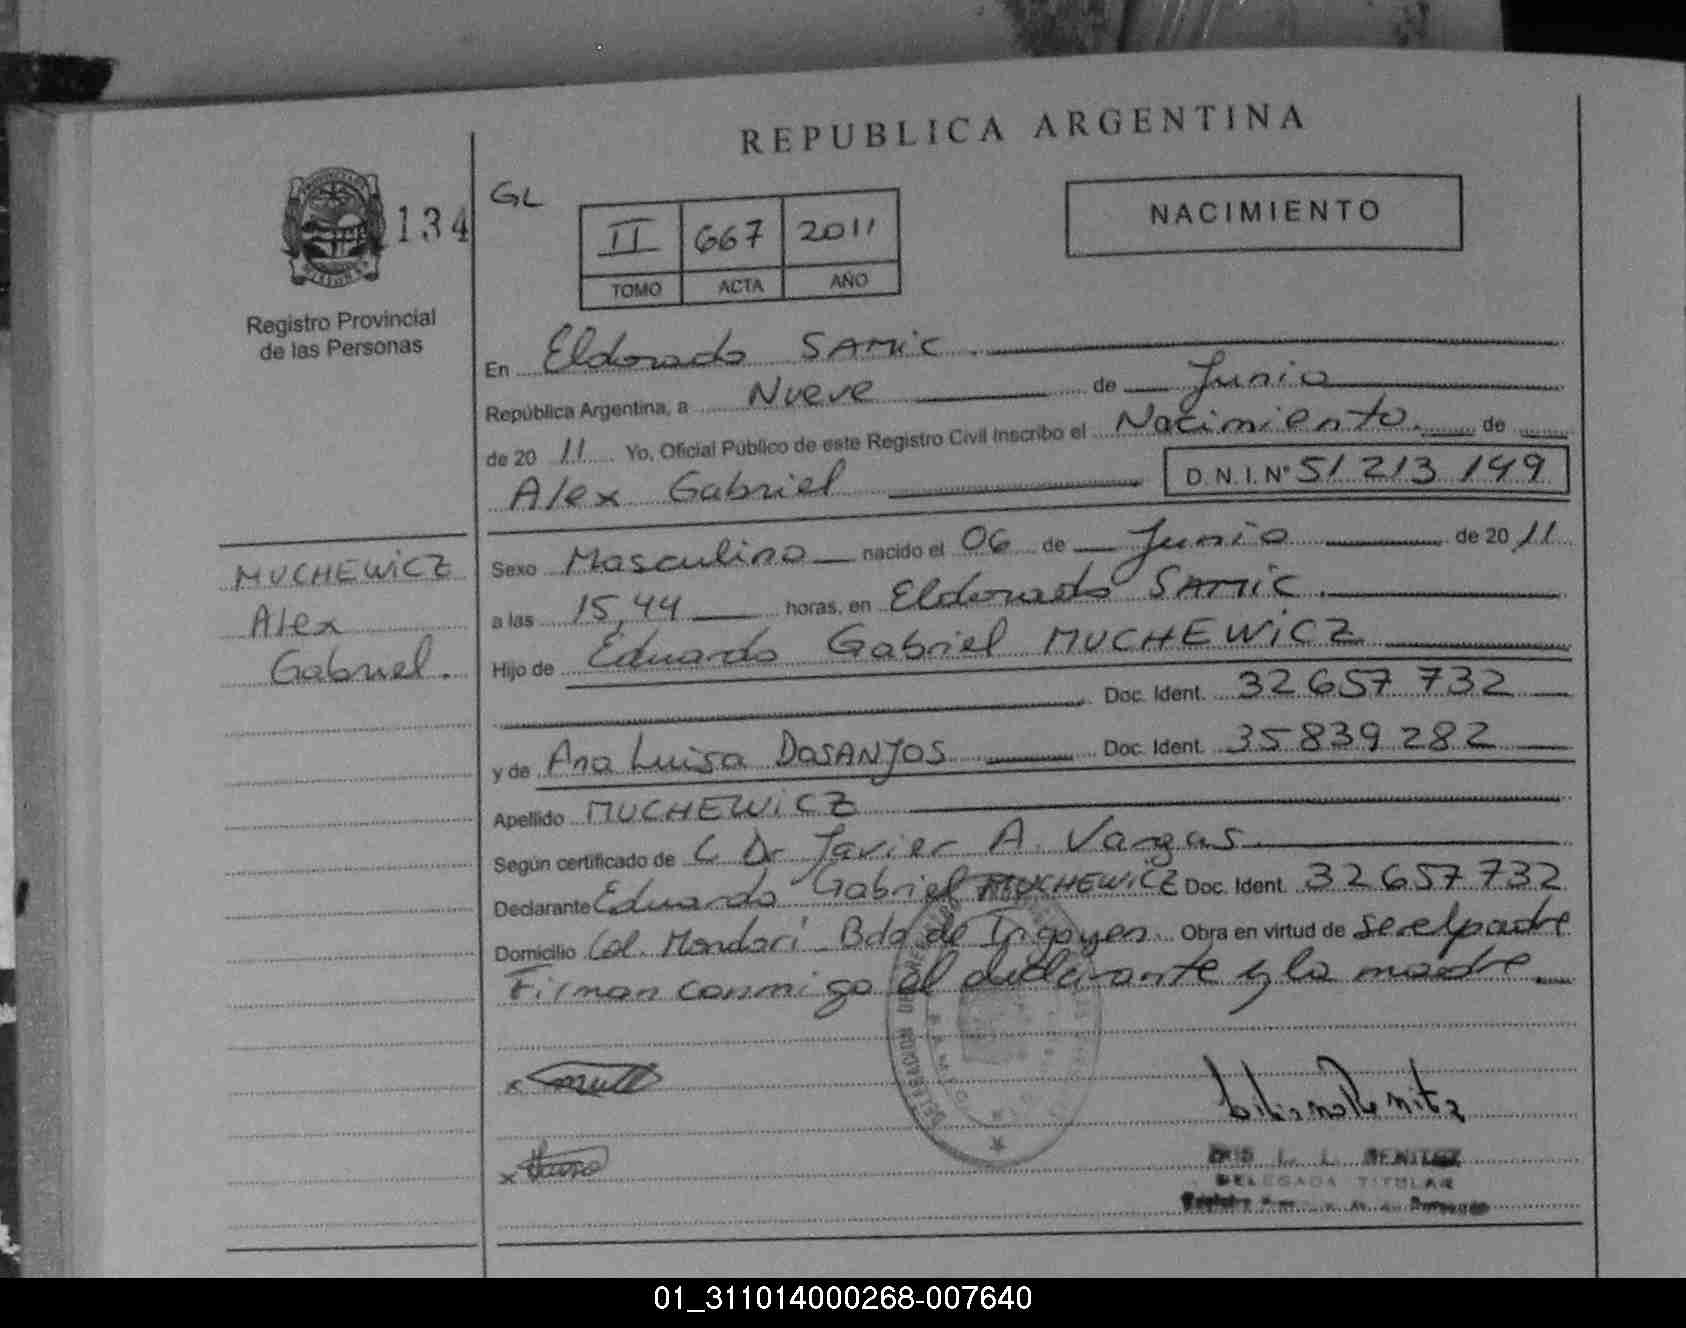 REPUBLICA ARGENTINA
134
GL
II 667 2011
TOMO ACTA AÑO
NACIMIENTO
Registro Provincial
de las Personas
En Eldorado SAMIC.
República Argentina, a Nueve de Junio
de 20 11 Yo, Oficial Público de este Registro Civil Inscribo el Nacimiento. de
Alex Gabriel D.N.I. Nº 51 213 149
MUCHEWICZ
Alex
Gabriel.
Sexo Masculino nacido el 06 de Junio de 20 11
a las 15,44 horas, en Eldorado SAMIC.
Hijo de Eduardo Gabriel MUCHEWICZ
Doc. Ident. 32 657 732
y de Ana Luisa DOSANJOS Doc. Ident. 35 839 282
Apellido MUCHEWICZ
Según certificado de C. Dr Javier A. Vargas
Declarante Eduardo Gabriel MUCHEWICZ Doc. Ident. 32 657 732
Domicilio Col. Mondori Bdo de Irigoyen Obra en virtud de ser el padre
Firman conmigo el declarante y la madre.
x
x
L. L. BENITEZ
DELEGADA TITULAR
01_311014000268-007640